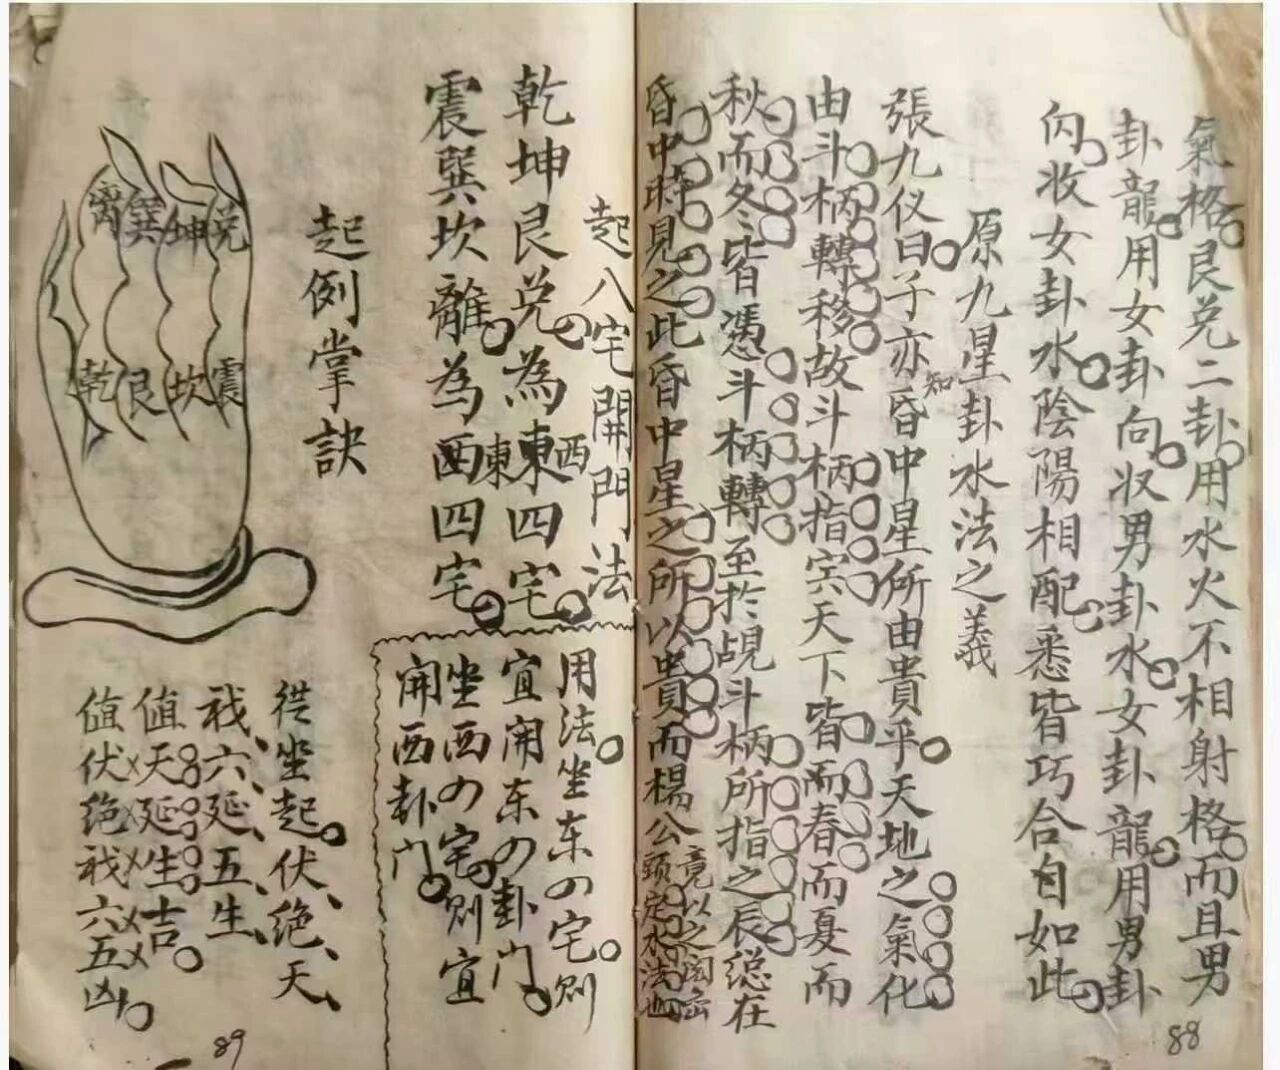 氣格。艮兑二卦。用水火不相射格。而且男
卦龍。用女卦向。收男卦水。女卦龍。用男卦
向。收女卦水。陰陽相配。悉皆巧合自如此。
原九星卦水法之義
張九仪曰。子亦知昏中星所由貴乎。天地之氣化
由斗柄轉移。故斗柄指寅。天下皆而春而夏而
秋而冬。皆憑斗柄轉。至於覘斗柄所指之辰。總在
昏中時見之。此昏中星之所以貴。而楊公竟以之
頭定水法也
88
起八宅開門法
乾坤艮兑。為東西四宅。
震巽坎離。為西東四宅。
用法。坐东の宅。则
宜開东の卦门。
坐西の宅。则宜
開西卦门。
起例掌訣
离巽坤兑
乾艮坎震
從坐起。伏、绝、天、
祸、六、延、五、生、
值天延生吉。
值伏绝祸六五凶。
89